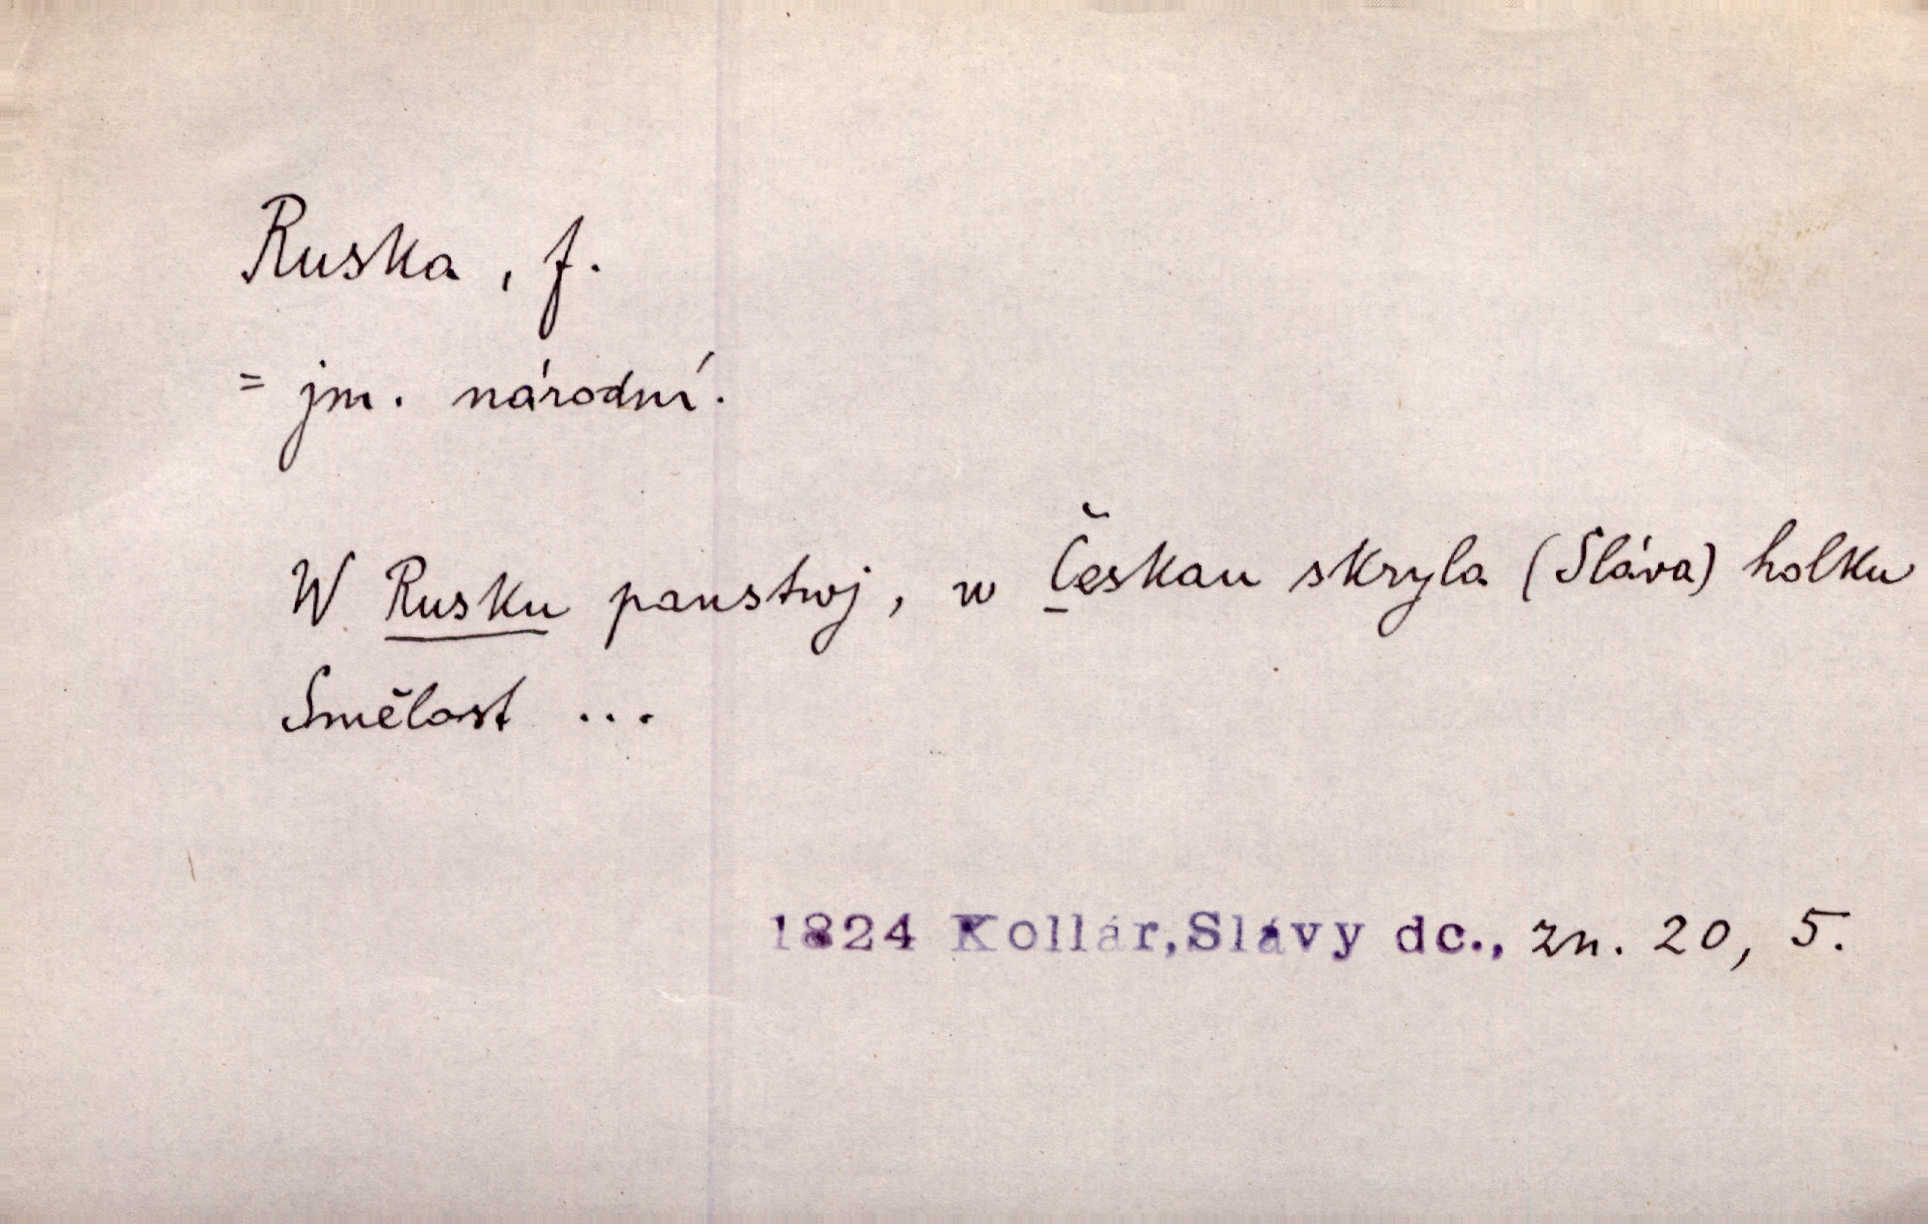 Ruska, f.
= jm. národní.
W Rusku panstwj, w Českau skryla (Sláva) holku
Smělost ...
1824 Kollár, Slávy dc., zn. 20, 5.